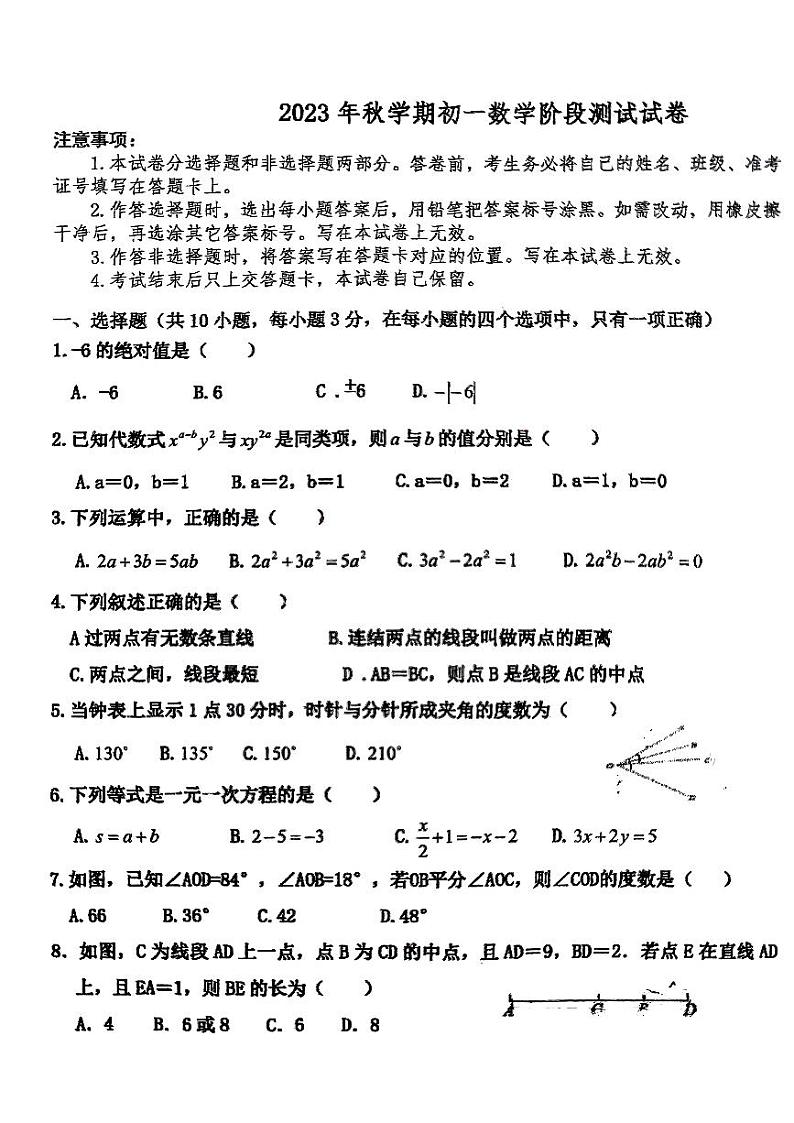 2023年秋学期初一数学阶段测试试卷
注意事项:
1.本试卷分选择题和非选择题两部分。答卷前,考生务必将自己的姓名、班级、准考
证号填写在答题卡上。
2.作答选择题时,选出每小题答案后,用铅笔把答案标号涂黑。如需改动,用橡皮擦
干净后,再选涂其它答案标号。写在本试卷上无效。
3.作答非选择题时,将答案写在答题卡对应的位置。写在本试卷上无效。
4.考试结束后只上交答题卡,本试卷自己保留。
一、选择题(共10小题,每小题3分,在每小题的四个选项中,只有一项正确)
1.-6的绝对值是( )
A. -6 B.6 C .±6 D. -|-6|
2.已知代数式x^{a-b}y²与xy^{2a}是同类项,则a与b的值分别是( )
A.a=0,b=1 B.a=2,b=1 C.a=0,b=2 D.a=1,b=0
3.下列运算中,正确的是( )
A. 2a+3b=5ab B. 2a²+3a²=5a² C. 3a²-2a²=1 D. 2a²b-2ab²=0
4.下列叙述正确的是( )
A过两点有无数条直线 B.连结两点的线段叫做两点的距离
C.两点之间,线段最短 D .AB=BC,则点B是线段AC的中点
5.当钟表上显示1点30分时,时针与分针所成夹角的度数为( )
A.130° B.135° C.150° D.210°
6.下列等式是一元一次方程的是( )
A. s=a+b B. 2-5=-3 C. x/2+1=-x-2 D. 3x+2y=5
7.如图,已知∠AOD=84°,∠AOB=18°,若OB平分∠AOC,则∠COD的度数是( )
A.66 B.36° C.42 D.48°
8.如图,C为线段AD上一点,点B为CD的中点,且AD=9,BD=2.若点E在直线AD
上,且EA=1,则BE的长为( )
A C B D
A. 4 B. 6或8 C. 6 D. 8